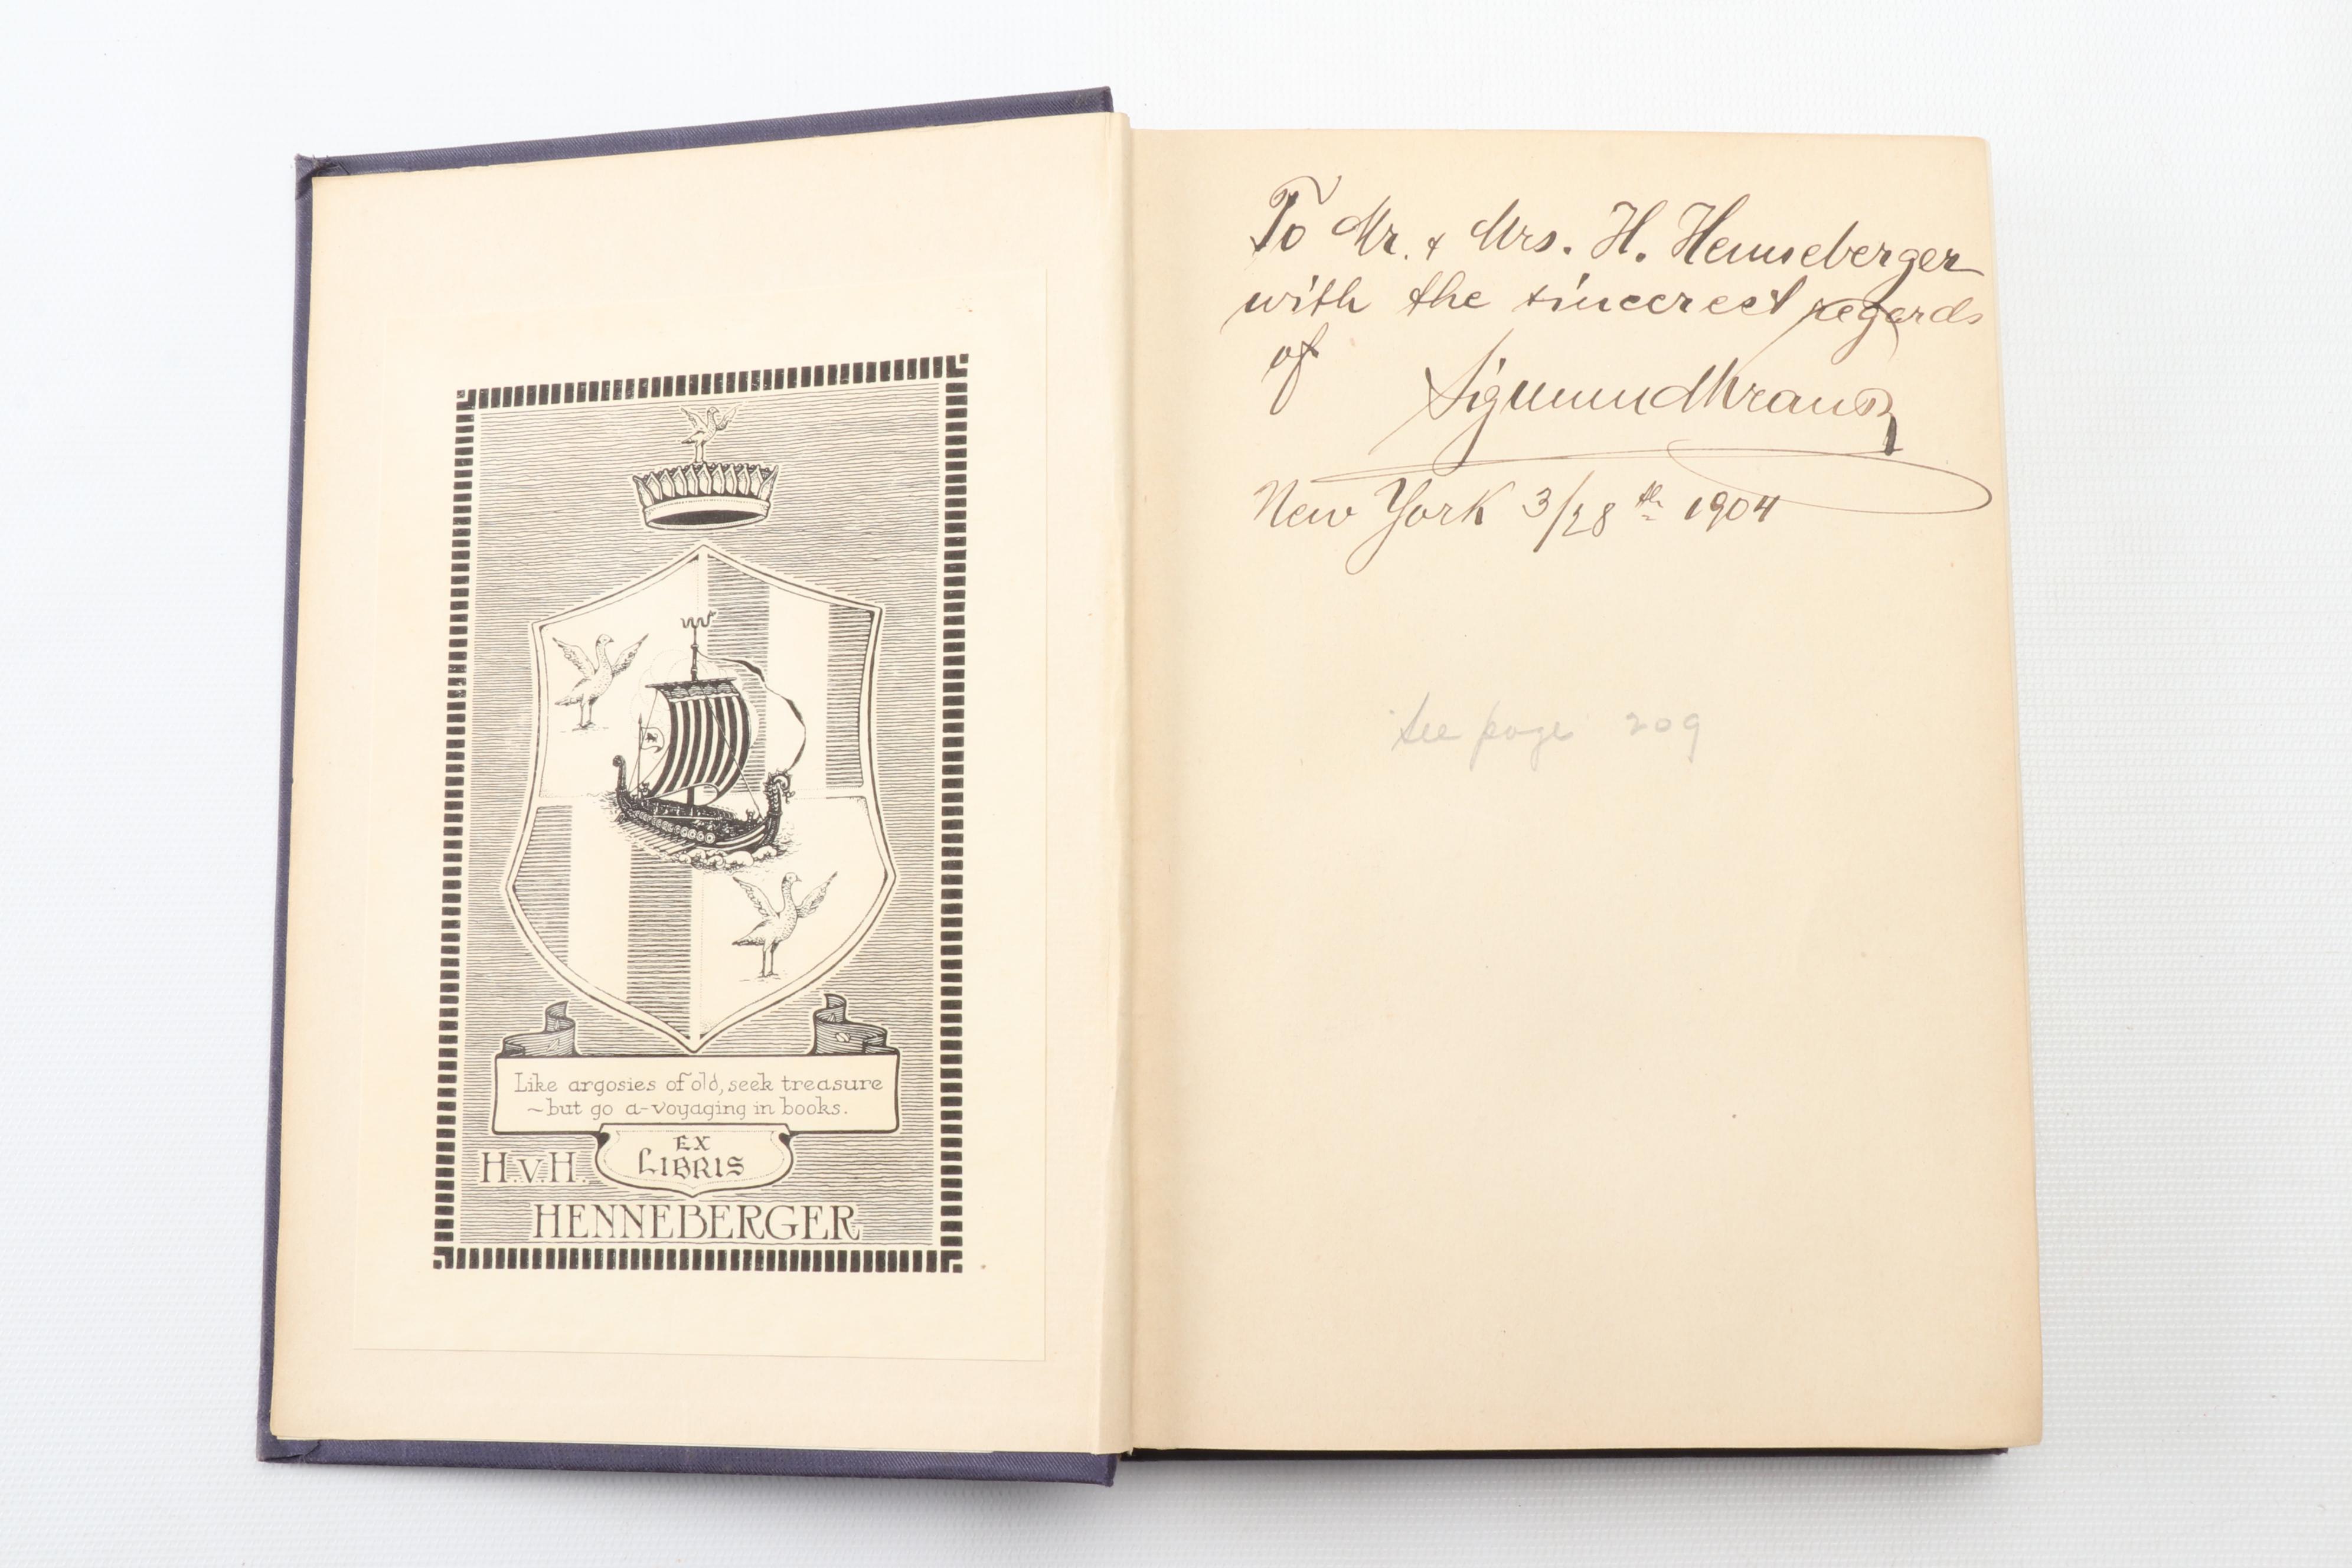 Like argosies of old, seek treasure
~but go a-voyaging in books.
EX
LIBRIS
H.v.H.
HENNEBERGER
To Mr. & Mrs. H. Henneberger
with the sincerest regards
of Sigmund Krausz
New York 3/28th 1904
See page 209